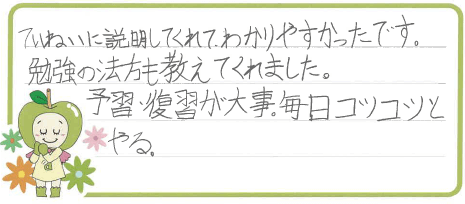 ていねいに説明してくれて、わかりやすかったです。
勉強の法方も教えてくれました。
予習・復習が大事。毎日コツコツと
やる。